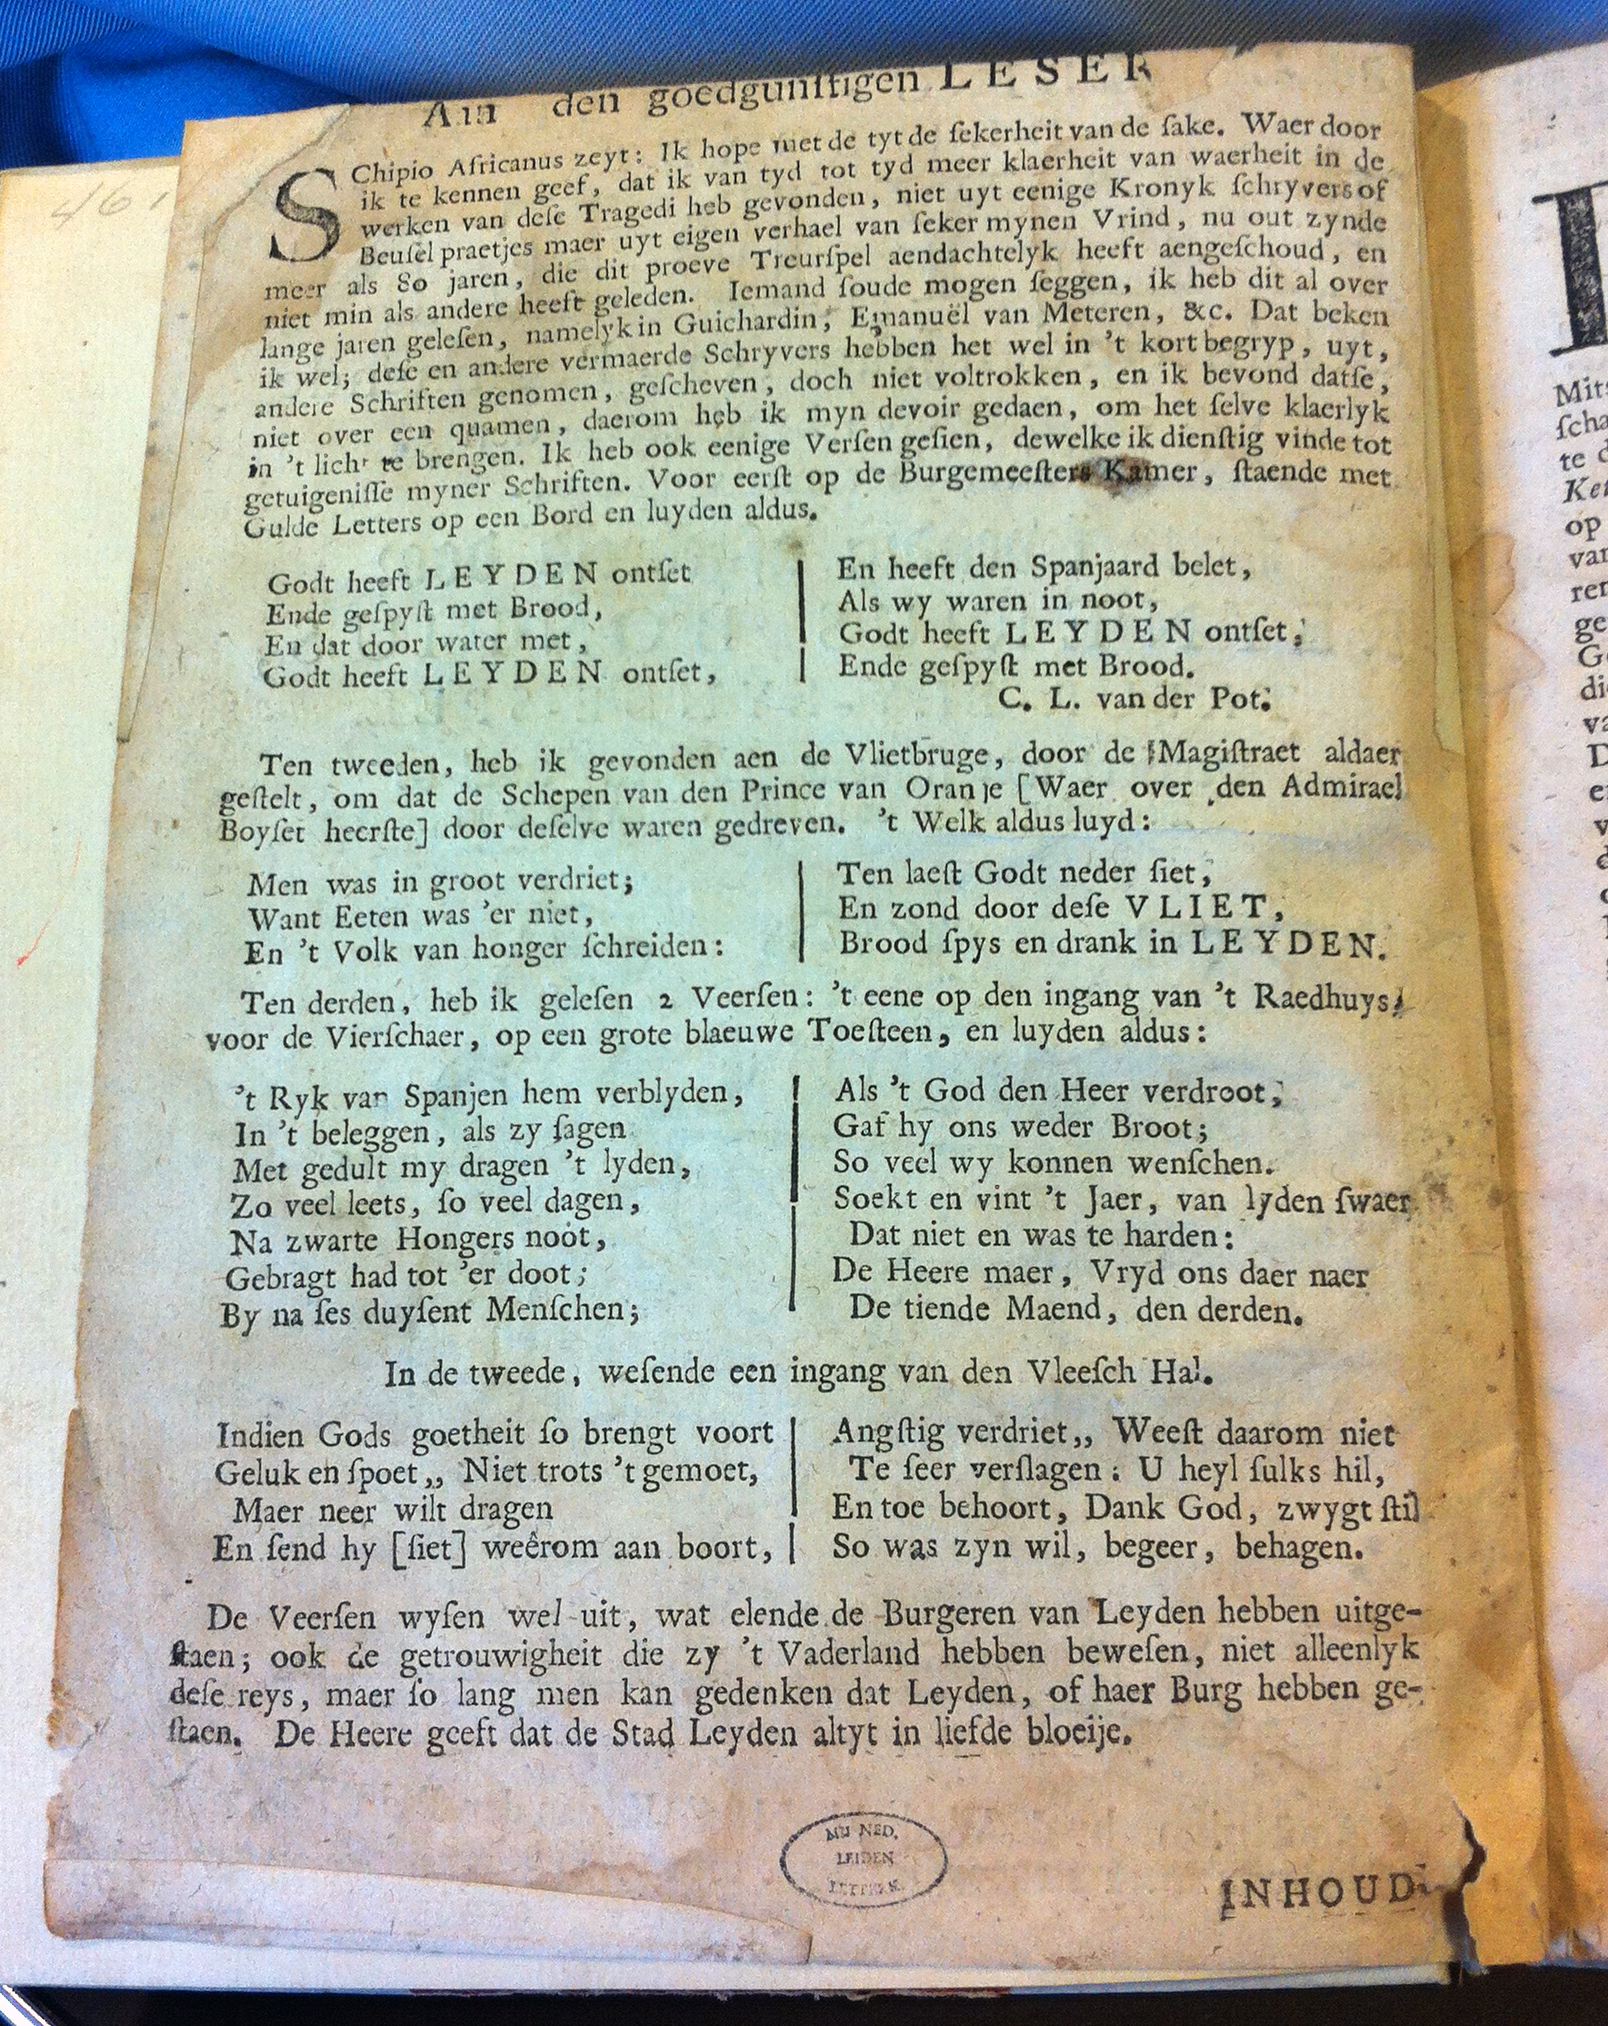 461
Aan den goedgunſtigen LESER
SChipio Africanus zeyt: Ik hope met de tyt de ſekerheit van de ſake. Waer door
ik te kennen geef, dat ik van tyd tot tyd meer klaerheit van waerheit in de
werken van deſe Tragedi heb gevonden, niet uyt eenige Kronyk ſchryvers of
Beuſel praetjes maer uyt eigen verhael van ſeker mynen Vrind, nu out zynde
meer als 80 jaren, die dit proeve Treurſpel aendachtelyk heeft aengeſchoud, en
niet min als andere heeft geleden. Iemand ſoude mogen ſeggen, ik heb dit al over
lange jaren geleſen, namelyk in Guichardin, Emanuël van Meteren, &c. Dat beken
ik wel; deſe en andere vermaerde Schryvers hebben het wel in 't kort begryp, uyt,
andere Schriften genomen, geſcheven, doch niet voltrokken, en ik bevond datſe,
niet over een quamen, daerom heb ik myn devoir gedaen, om het ſelve klaerlyk
in 't licht te brengen. Ik heb ook eenige Verſen geſien, dewelke ik dienſtig vinde tot
getuigeniſſe myner Schriften. Voor eerſt op de Burgemeeſters Kamer, ſtaende met
Gulde Letters op een Bord en luyden aldus.
Godt heeft LEYDEN ontſet
Ende geſpyſt met Brood,
En dat door water met,
Godt heeft LEYDEN ontſet,
En heeft den Spanjaard belet,
Als wy waren in noot,
Godt heeft LEYDEN ontſet,
Ende geſpyſt met Brood.
C. L. van der Pot.
Ten tweeden, heb ik gevonden aen de Vlietbruge, door de Magiſtraet aldaer
geſtelt, om dat de Schepen van den Prince van Oranje [Waer over den Admirael
Boyſet heerſte] door deſelve waren gedreven. 't Welk aldus luyd:
Men was in groot verdriet;
Want Eeten was 'er niet,
En 't Volk van honger ſchreiden:
Ten laeſt Godt neder ſiet,
En zond door deſe VLIET,
Brood ſpys en drank in LEYDEN.
Ten derden, heb ik geleſen 2 Veerſen: 't eene op den ingang van 't Raedhuys,
voor de Vierſchaer, op een grote blaeuwe Toeſteen, en luyden aldus:
't Ryk van Spanjen hem verblyden,
In 't beleggen, als zy ſagen
Met gedult my dragen 't lyden,
Zo veel leets, ſo veel dagen,
Na zwarte Hongers noot,
Gebragt had tot 'er doot;
By na ſes duyſent Menſchen;
Als 't God den Heer verdroot,
Gaf hy ons weder Broot;
So veel wy konnen wenſchen.
Soekt en vint 't Jaer, van lyden ſwaer
Dat niet en was te harden:
De Heere maer, Vryd ons daer naer
De tiende Maend, den derden.
In de tweede, weſende een ingang van den Vleeſch Hal.
Indien Gods goetheit ſo brengt voort
Geluk en ſpoet,, Niet trots 't gemoet,
Maer neer wilt dragen
En ſend hy [ſiet] weêrom aan boort,
Angſtig verdriet,, Weeſt daarom niet
Te ſeer verſlagen: U heyl ſulks hil,
En toe behoort, Dank God, zwygt ſtil
So was zyn wil, begeer, behagen.
De Veerſen wyſen wel uit, wat elende de Burgeren van Leyden hebben uitge-
ſtaen; ook de getrouwigheit die zy 't Vaderland hebben beweſen, niet alleenlyk
deſe reys, maer ſo lang men kan gedenken dat Leyden, of haer Burg hebben ge-
ſtaen. De Heere geeft dat de Stad Leyden altyt in liefde bloeije.
NED.
LEIDEN
INHOUD
Mit
ſcha
te d
Ket
op
van
ren
ge